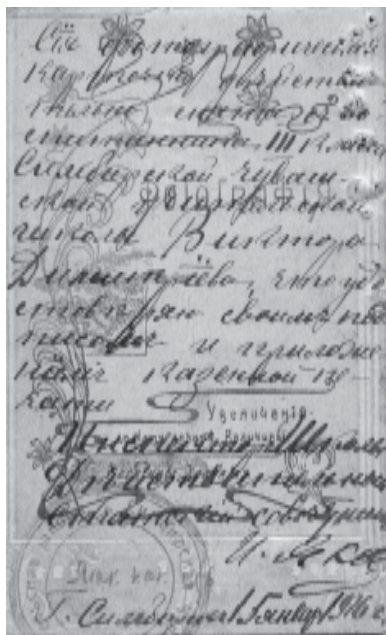 Сія фотографическая
карточка дѣйстви-
тельно
III класса
Симбирской Чуваш-
ской учительской
школы Виктора
Димитріева, что удо-
стовѣряю своимъ под-
писомъ и приложе-
ніемъ казенной пе-
чати
ФОТОГРАФІЯ
Увеличеніе
Инспекторъ Школы
Дѣйствительный
Статскій Совѣтникъ
И. Яков
Г. Симбирскъ 15 янвр 1916 г.